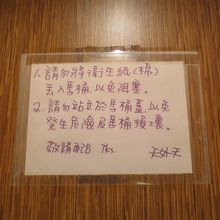 1.請勿將衛生紙(棉)
丟入馬桶,以免阻塞。
2.請勿站立於馬桶蓋,以免
發生危險及馬桶損壞。
敬請配合 Yks.
天外天